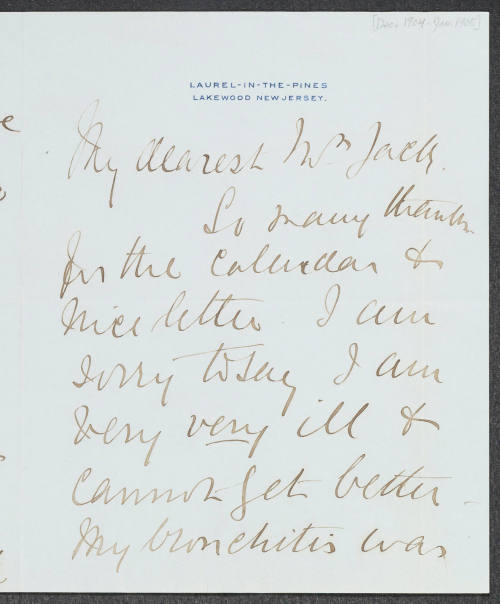 [Dec. 1904-Jan. 1905]
LAUREL-IN-THE-PINES
LAKEWOOD NEW JERSEY.
My dearest Mrs Jack.
So many thanks
for the Calendar &
nice letter. I am
sorry to say I am
very very ill &
cannot get better.
My bronchitis was